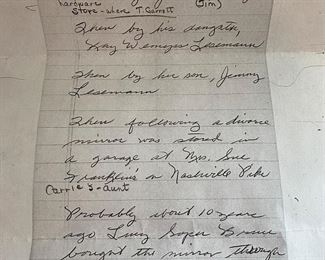 hardware
Store - where T. Garrett
Jim)
Then by his daughter,
Kay Wemyss Lesemann
Then by her son, Jimmy
Lesemann
Then following a divorce
mirror was stored in
a garage at Mrs. Sue
Franklin's on Nashville Pike
Carrie's - aunt
Probably about 10 years
ago Lucy Soper
bought the mirror through